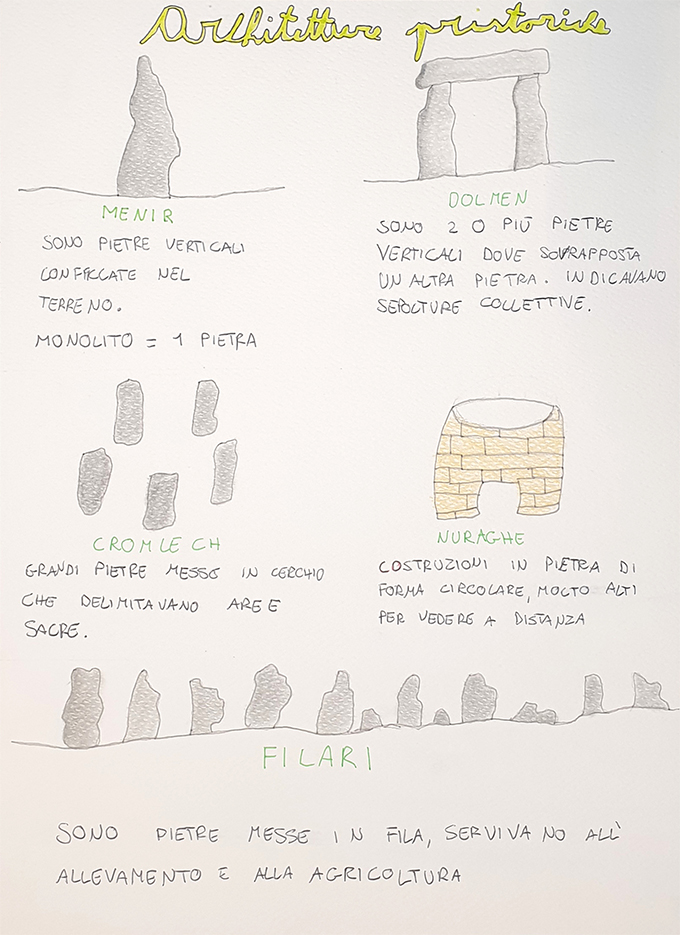 Architetture pristoriche
MENIR
SONO PIETRE VERTICALI
CONFICCATE NEL
TERRENO.
MONOLITO = 1 PIETRA
DOLMEN
SONO 2 O PIÙ PIETRE
VERTICALI DOVE SOVRAPPOSTA
UN ALTRA PIETRA. INDICAVANO
SEPOLTURE COLLETTIVE.
CROMLECH
GRANDI PIETRE MESSE IN CERCHIO
CHE DELIMITAVANO AREE
SACRE.
NURAGHE
COSTRUZIONI IN PIETRA DI
FORMA CIRCOLARE, MOLTO ALTI
PER VEDERE A DISTANZA
FILARI
SONO PIETRE MESSE IN FILA, SERVIVANO ALL'
ALLEVAMENTO E ALLA AGRICOLTURA